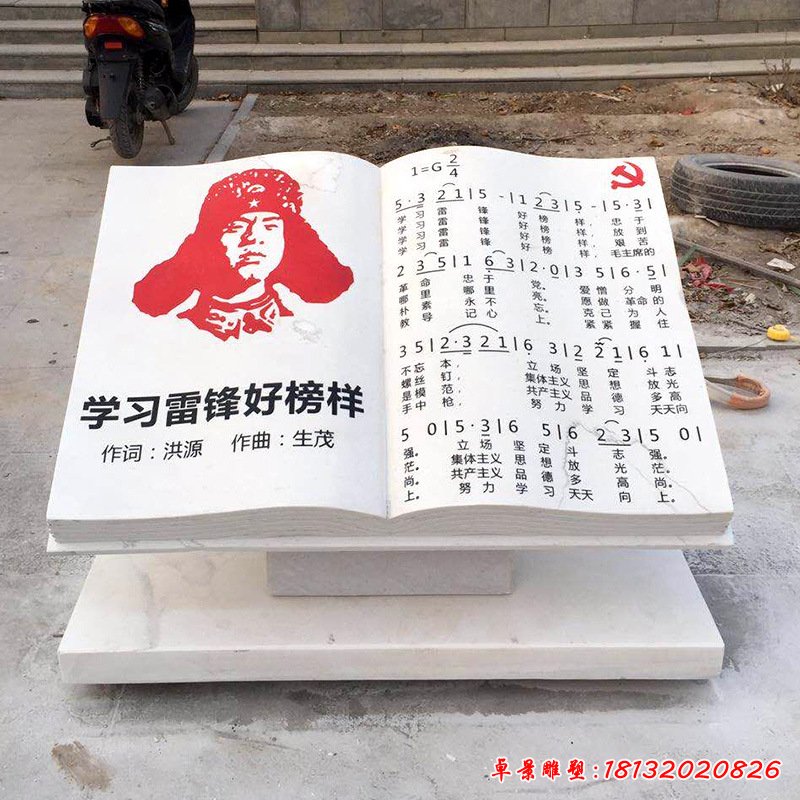 学习雷锋好榜样
作词：洪源 作曲：生茂
1=G 2/4
5·3 2 1 | 5 - | 1 2 3 | 5 - | 5·3 |
学习雷锋好榜样，忠于
学习雷锋好榜样，放到
学习雷锋好榜样，艰苦
学习雷锋好榜样，毛主席的
2 3 5 | 1 6 | 2·0 | 3 5 | 6·5 |
革命忠于党。爱憎分明
哪里哪里亮。愿做革命的
朴素永不忘。克己为人
教导记心上。紧紧握住
3 5 | 2·3 2 1 | 6 3 | 2 2 1 | 6 1 |
不忘本，立场坚定斗志
螺丝钉，集体主义思想放光
是模范，共产主义品德多高
手中枪，努力学习天天向
5 0 | 5·3 | 6 5 | 6 2 3 | 5 0 |
强。立场坚定斗志强。
茫。集体主义思想放光茫。
尚。共产主义品德多高尚。
上。努力学习天天向上。
卓景雕塑:18132020826